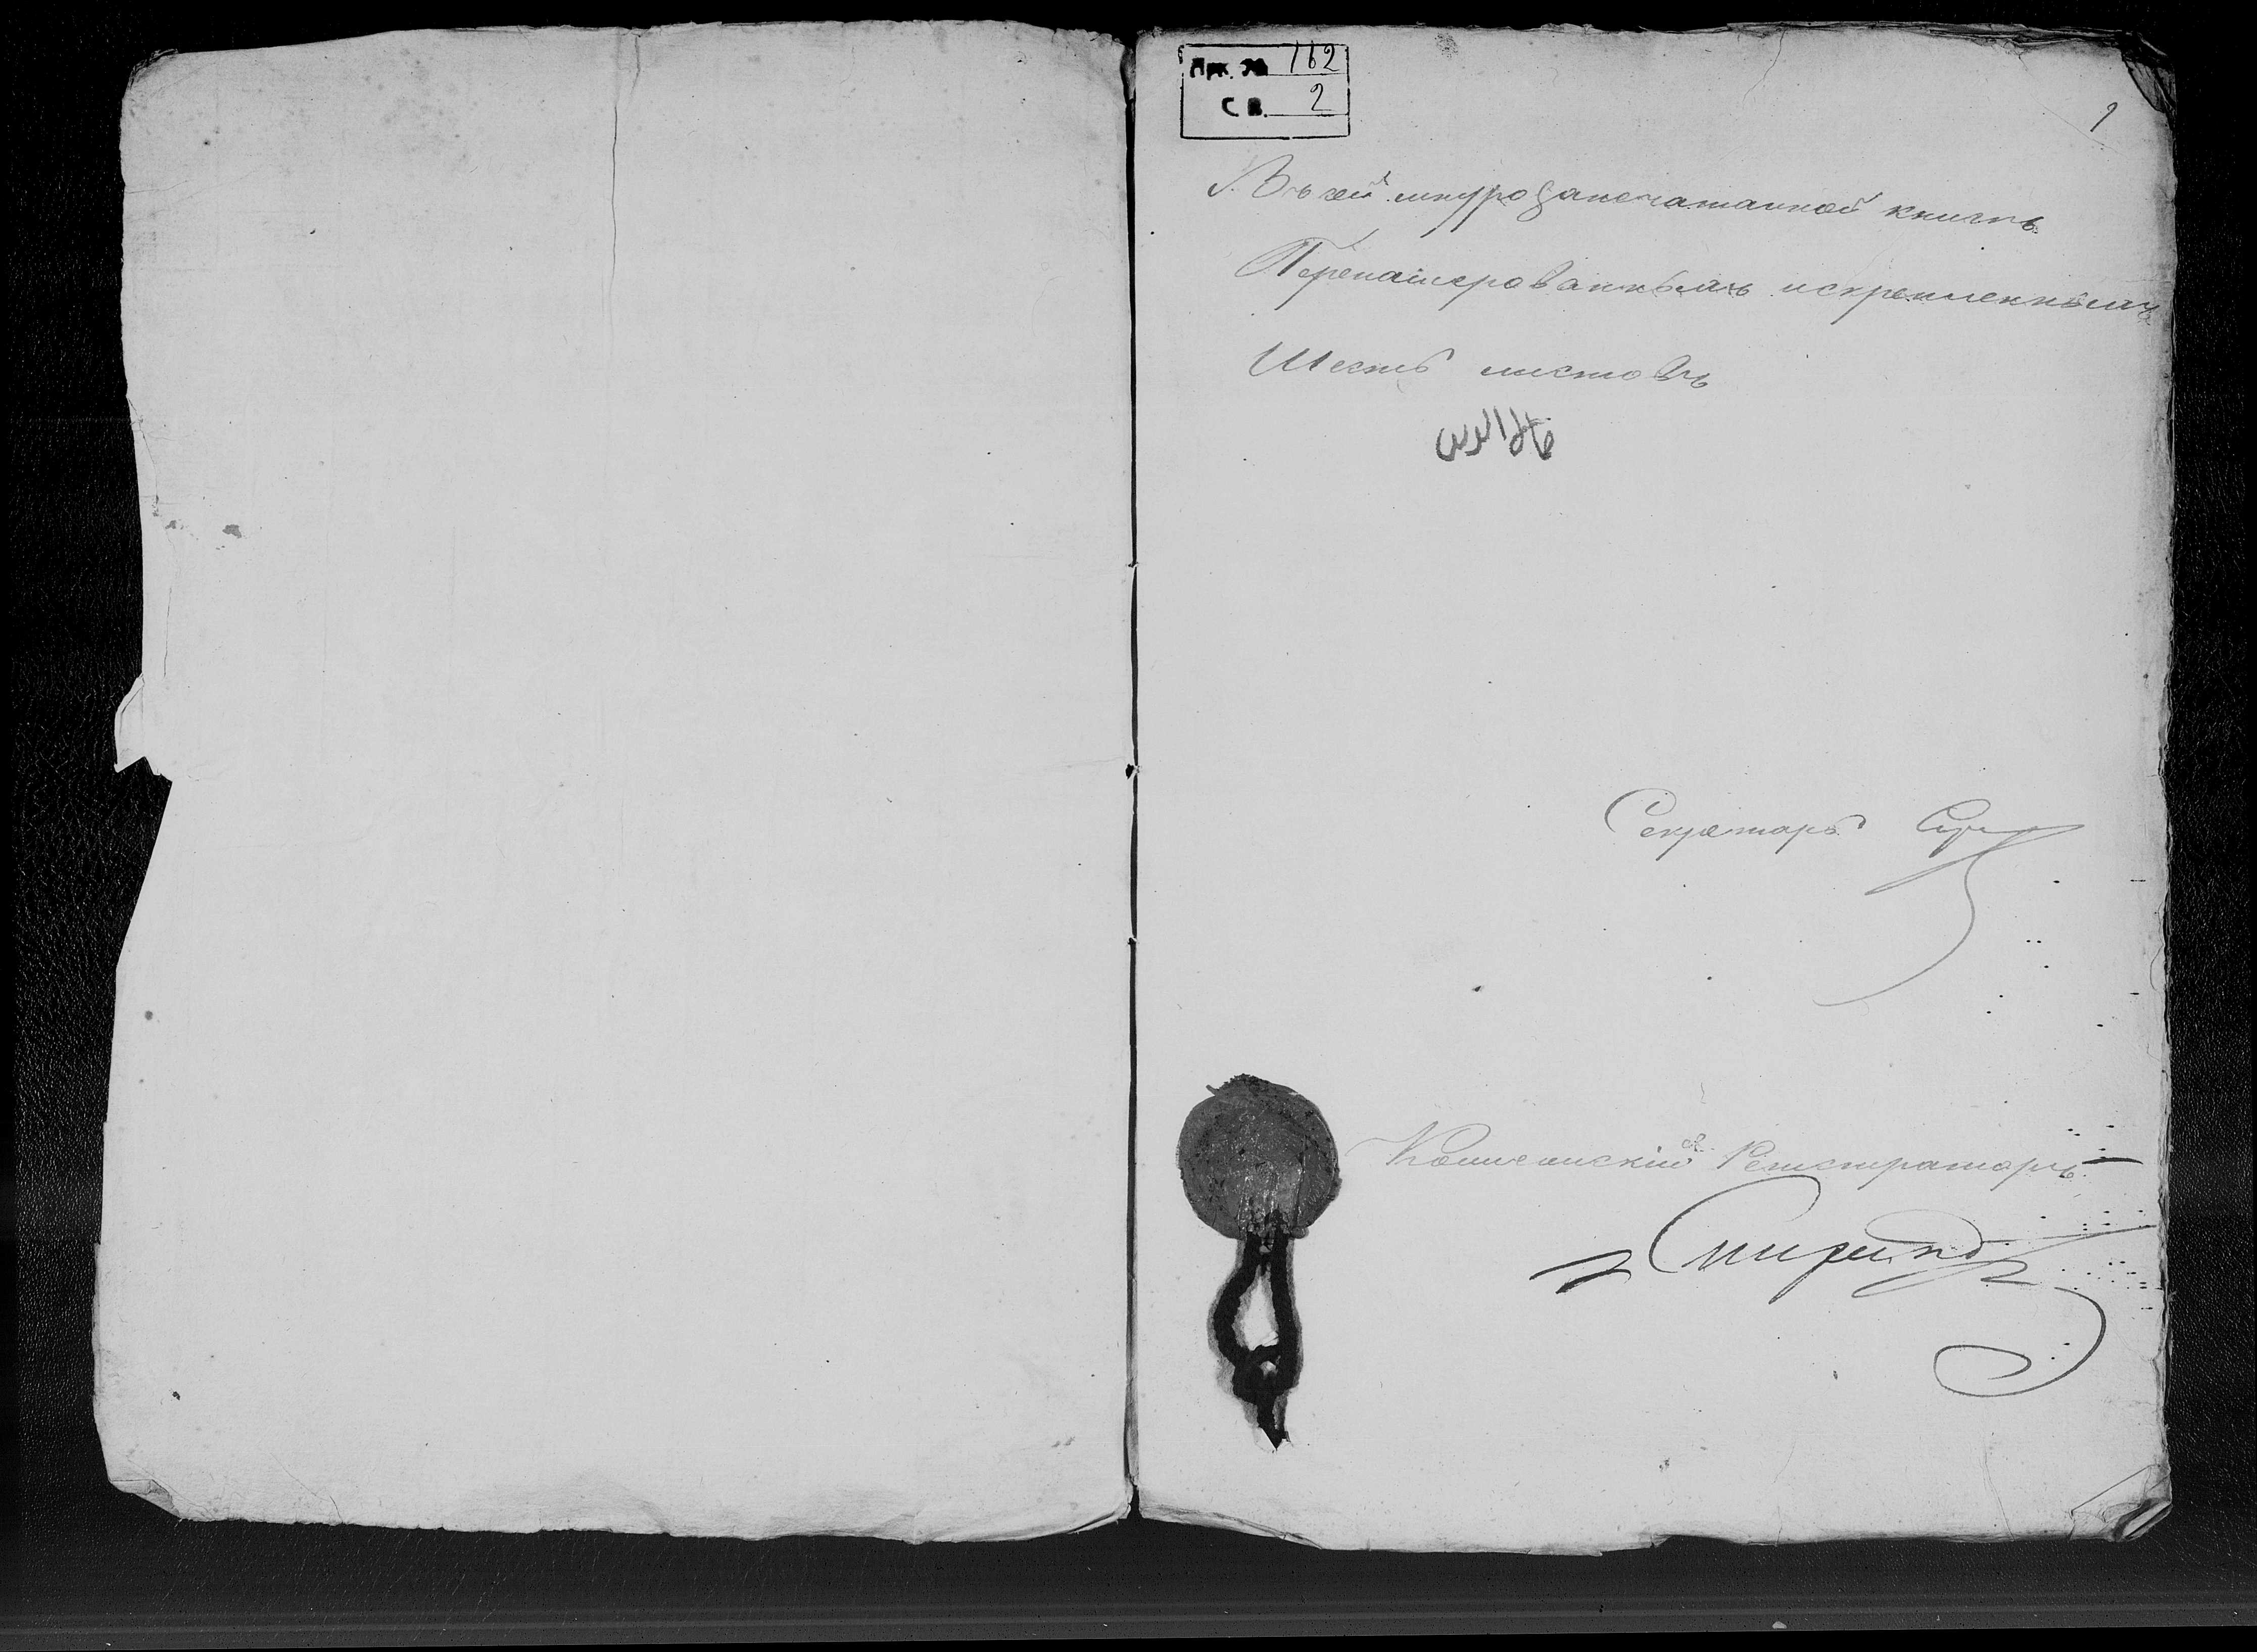 162
св. 2
1
Въ сей шнурозапечатанной книгѣ
Перенумерованныхъ искрепленныхъ
Шесть листовъ
Секретарь
Коллежскій Регистраторъ